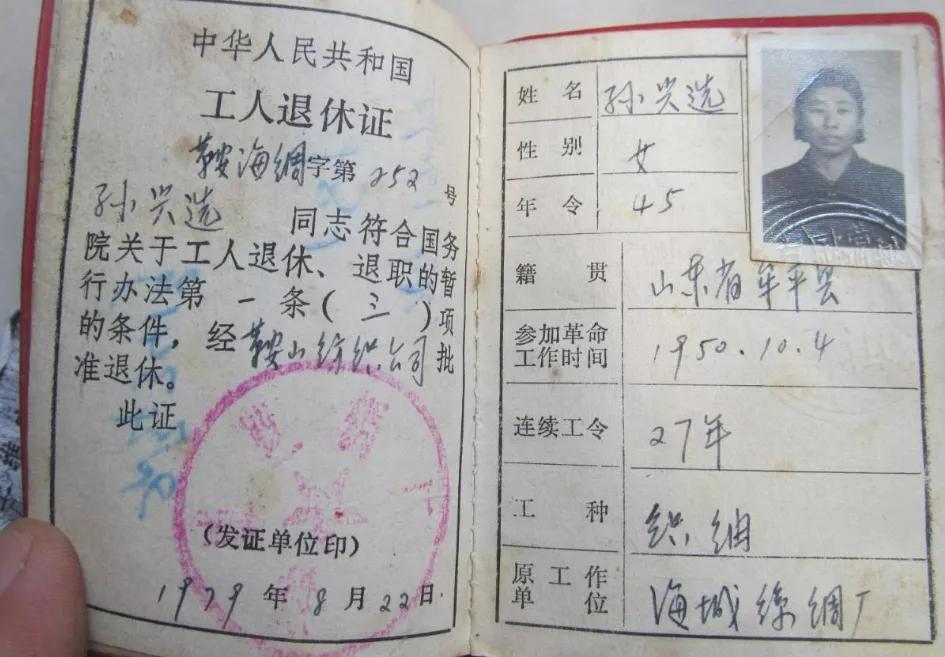 中华人民共和国
工人退休证
鞍海绸字第252号
孙兴选 同志符合国务
院关于工人退休、退职的暂
行办法第一条(三)项
的条件，经鞍山纺织公司批
准退休。
此证
(发证单位印)
1979年8月22日
姓名 孙兴选
性别 女
年令 45
籍贯 山东省牟平县
参加革命
工作时间 1950.10.4
连续工令 27年
工种 织绸
原工作
单位 海城丝绸厂